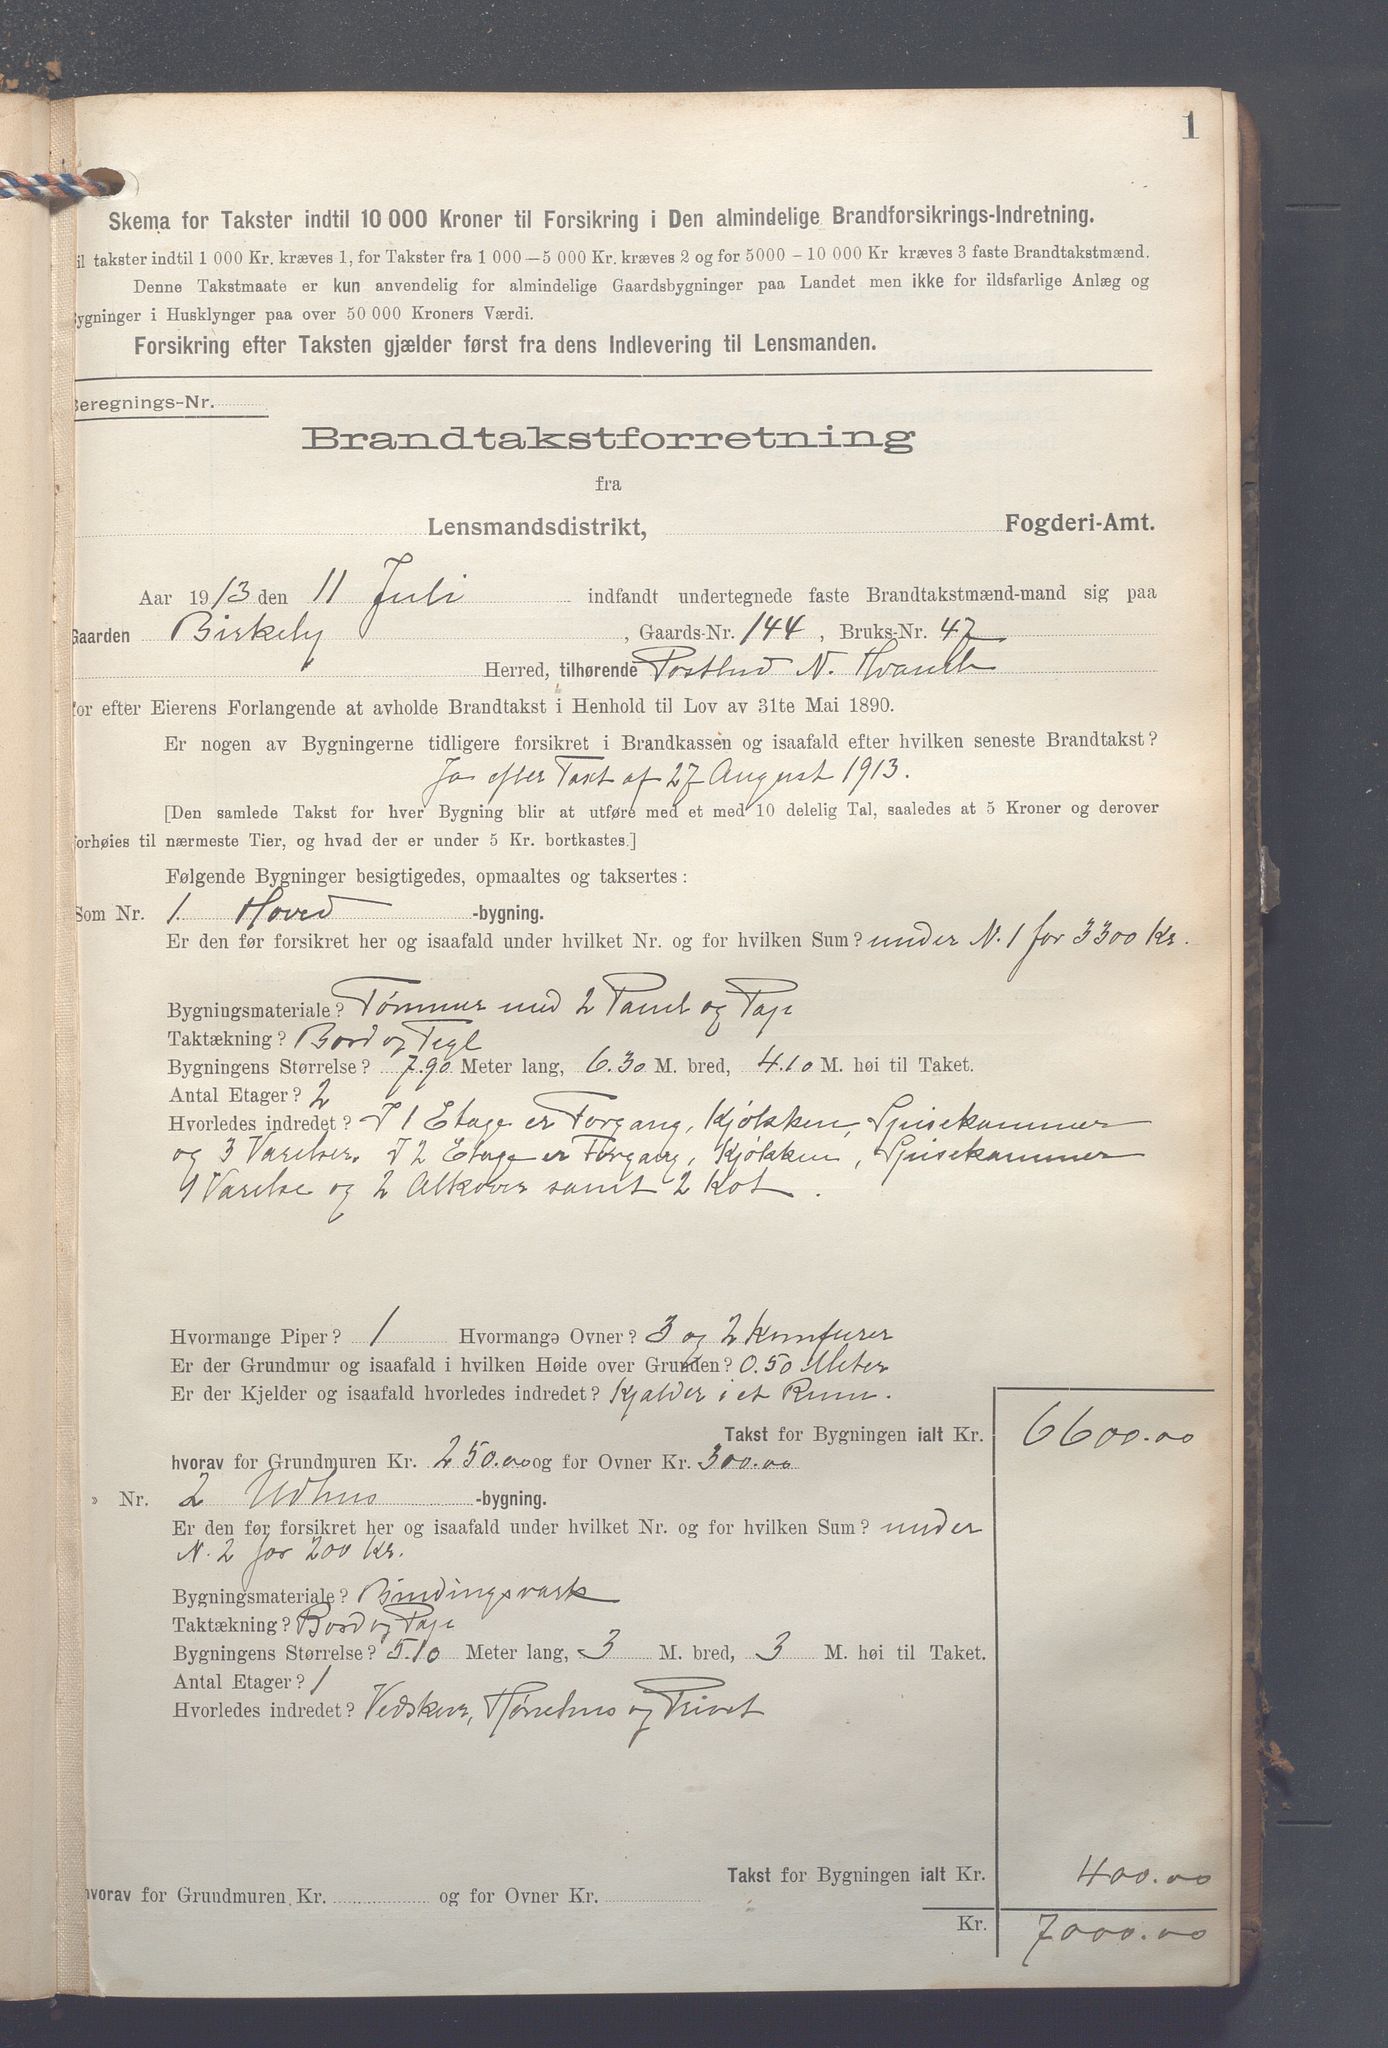 1
Skema for Takster indtil 10 000 Kroner til Forsikring i Den almindelige Brandforsikrings-Indretning.
il takster indtil 1 000 Kr. kræves 1, for Takster fra 1 000 — 5 000 Kr. kræves 2 og for 5000 — 10 000 Kr kræves 3 faste Brandtakstmænd.
Denne Takstmaate er kun anvendelig for almindelige Gaardsbygninger paa Landet men ikke for ildsfarlige Anlæg og
ygninger i Husklynger paa over 50 000 Kroners Værdi.
Forsikring efter Taksten gjælder først fra dens Indlevering til Lensmanden.
Beregnings-Nr.
Brandtakstforretning
fra
Lensmandsdistrikt, Fogderi-Amt.
Aar 1913 den 11 Juli indfandt undertegnede faste Brandtakstmænd-mand sig paa
Gaarden Birkely, Gaards-Nr. 144, Bruks-Nr. 47
Herred, tilhørende Postbud N.
for efter Eierens Forlangende at avholde Brandtakst i Henhold til Lov av 31te Mai 1890.
Er nogen av Bygningerne tidligere forsikret i Brandkassen og isaafald efter hvilken seneste Brandtakst?
Ja efter Taxt af 27 August 1913.
[Den samlede Takst for hver Bygning blir at utføre med et med 10 delelig Tal, saaledes at 5 Kroner og derover
forhøies til nærmeste Tier, og hvad der er under 5 Kr. bortkastes.]
Følgende Bygninger besigtigedes, opmaaltes og taksertes:
Som Nr. 1. Hoved -bygning.
Er den før forsikret her og isaafald under hvilket Nr. og for hvilken Sum? under N. 1 for 3300 Kr.
Bygningsmateriale? Tømmer med 2 Panel og Pap
Taktækning? Bord og Tegl
Bygningens Størrelse? 7.90 Meter lang, 6.30 M. bred, 4.10 M. høi til Taket.
Antal Etager? 2
Hvorledes indredet? I 1 Etage er Forgang, Kjøkken, Spisekammer
og 3 Værelser. I 2 Etage er Forgang, Kjøkken, Spisekammer
1 Værelse og 2 Alkover samt 2 Kot.
Hvormange Piper? 1 Hvormange Ovner? 3 og 2 Komfurer
Er der Grundmur og isaafald i hvilken Høide over Grunden? 0.50 Meter
Er der Kjelder og isaafald hvorledes indredet? Kjælder i et Rum.
Takst for Bygningen ialt Kr. 6600.00
hvorav for Grundmuren Kr. 250.00 og for Ovner Kr. 300.00
» Nr. 2 Udhus -bygning.
Er den før forsikret her og isaafald under hvilket Nr. og for hvilken Sum? under
N. 2 for 200 Kr.
Bygningsmateriale? Bindingsværk
Taktækning? Bord og Pap
Bygningens Størrelse? 5.10 Meter lang, 3 M. bred, 3 M. høi til Taket.
Antal Etager? 1
Hvorledes indredet? Vedskur, Hønsehus og Privet
Takst for Bygningen ialt Kr. 400.00
hvorav for Grundmuren Kr. og for Ovner Kr.
Kr. 7000.00